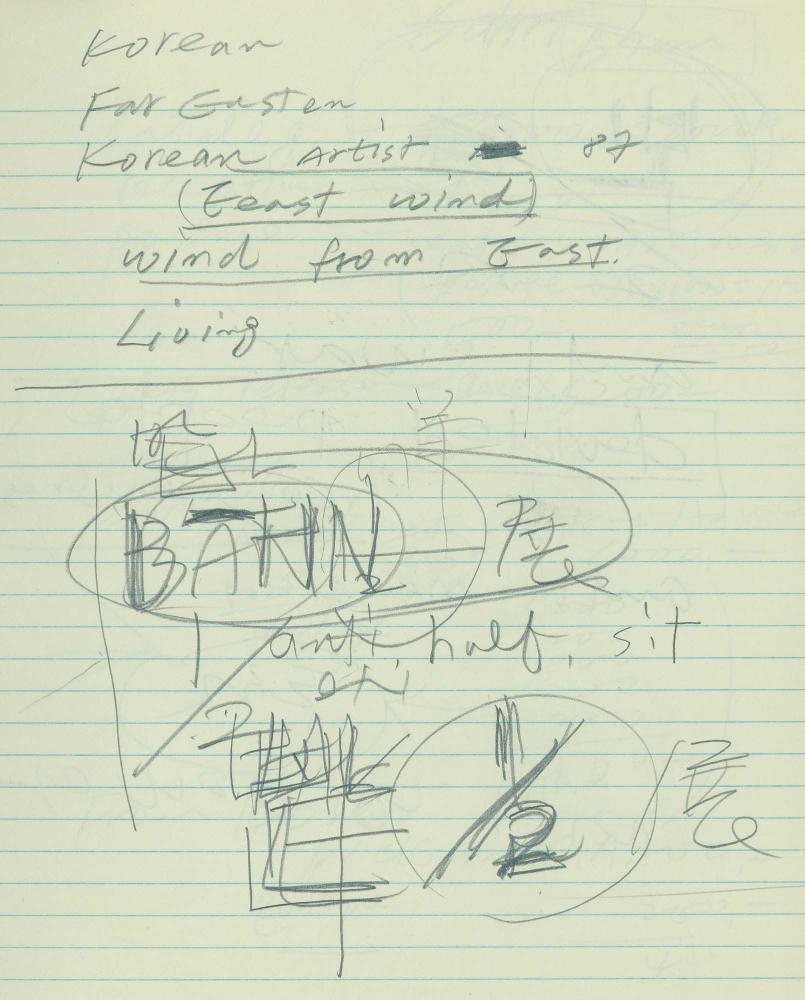 Korean
Far Easten
Korean Artist 87
(Eeast wind)
wind from East.
Living
BANN 展
anti half, sit
1/2 展